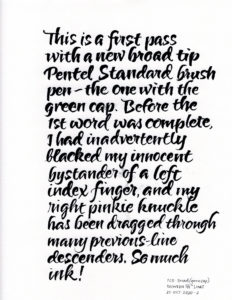 This is a first pass
with a new broad tip
Pentel Standard brush
pen – the one with the
green cap. Before the
1st word was complete,
I had inadvertently
blacked my innocent
bystander of a left
index finger, and my
right pinkie knuckle
has been dragged through
many previous-line
descenders. So much
ink!